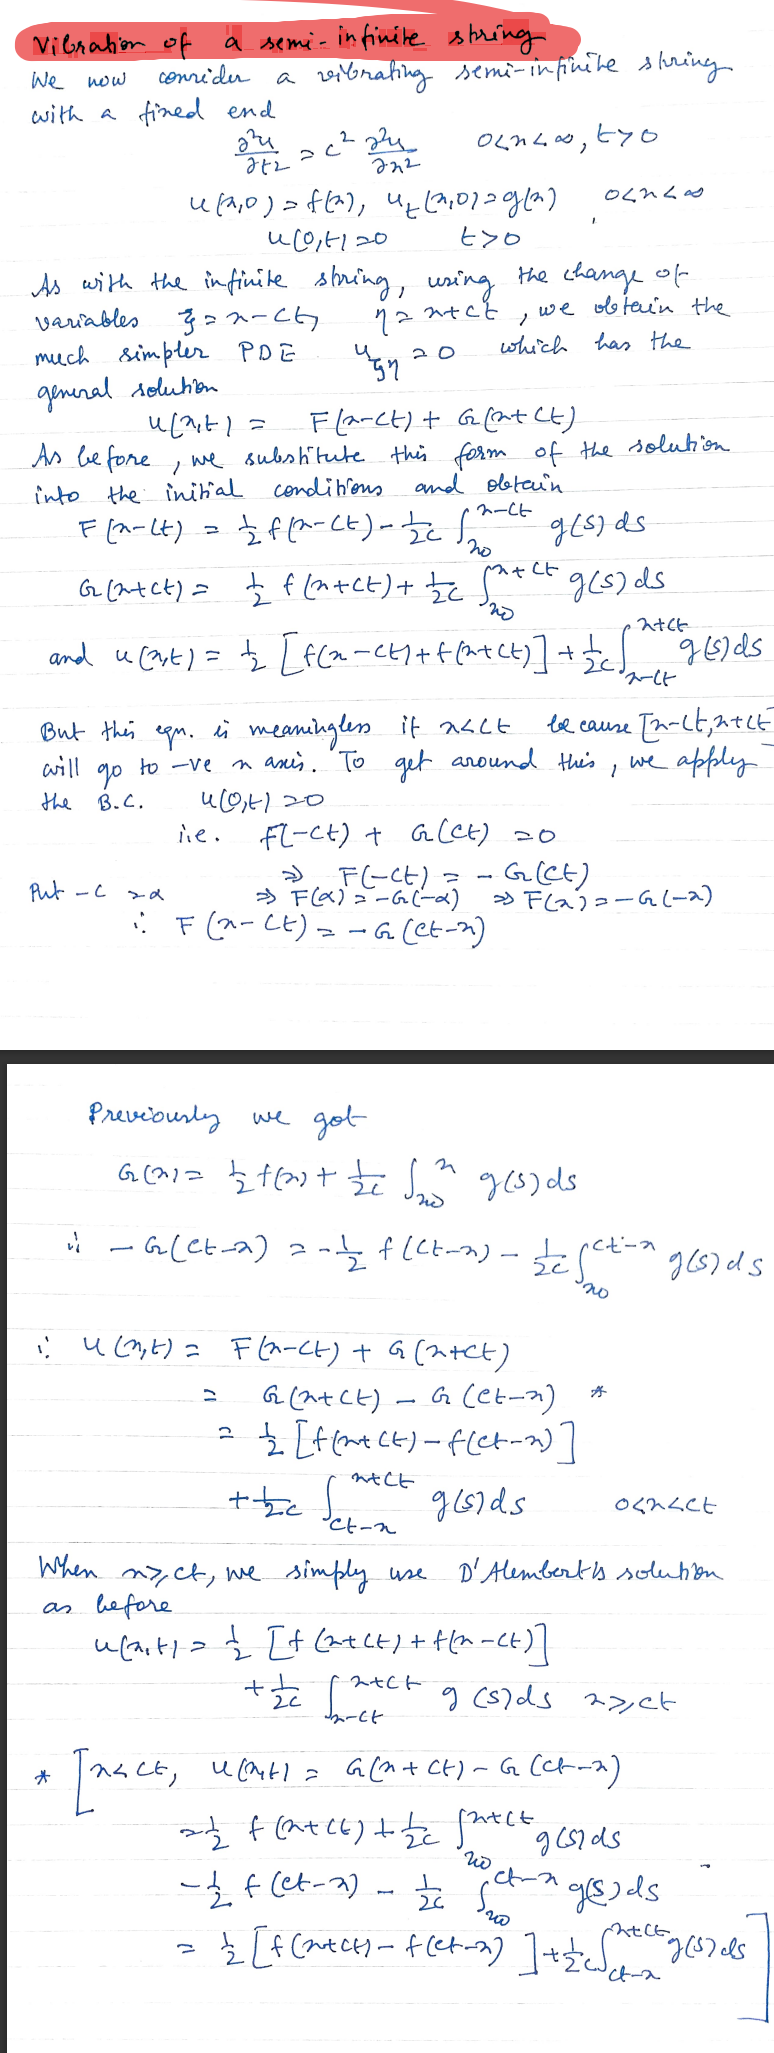 Vibration of a semi-infinite string
We now consider a vibrating semi-infinite string
with a fixed end
∂²u/∂t² = c² ∂²u/∂x²   0<x<∞, t>0
u(x,0) = f(x), u_t(x,0) = g(x)   0<x<∞
u(0,t) = 0   t>0
As with the infinite string, using the change of
variables ξ = x-ct, η = x+ct, we obtain the
much simpler PDE u_ξη = 0 which has the
general solution
u(x,t) = F(x-ct) + G(x+ct)
As before, we substitute this form of the solution
into the initial conditions and obtain
F(x-ct) = 1/2 f(x-ct) - 1/2c ∫_x0^x-ct g(s) ds
G(x+ct) = 1/2 f(x+ct) + 1/2c ∫_x0^x+ct g(s) ds
and u(x,t) = 1/2 [f(x-ct) + f(x+ct)] + 1/2c ∫_x-ct^x+ct g(s) ds
But this eqn. is meaningless if x<ct because [x-ct, x+ct]
will go to -ve x axis. To get around this, we apply
the B.C. u(0,t) = 0
i.e. F(-ct) + G(ct) = 0
⇒ F(-ct) = - G(ct)
Put -c = α ⇒ F(α) = -G(-α) ⇒ F(x) = -G(-x)
∴ F(x-ct) = - G(ct-x)
Previously we got
G(x) = 1/2 f(x) + 1/2c ∫_x0^x g(s) ds
∴ - G(ct-x) = -1/2 f(ct-x) - 1/2c ∫_x0^ct-x g(s) ds
∴ u(x,t) = F(x-ct) + G(x+ct)
= G(x+ct) - G(ct-x) *
= 1/2 [f(x+ct) - f(ct-x)]
+ 1/2c ∫_ct-x^x+ct g(s) ds   0<x<ct
When x≥ct, we simply use D'Alembert's solution
as before
u(x,t) = 1/2 [f(x+ct) + f(x-ct)]
+ 1/2c ∫_x-ct^x+ct g(s) ds   x≥ct
* [x<ct, u(x,t) = G(x+ct) - G(ct-x)
= 1/2 f(x+ct) + 1/2c ∫_x0^x+ct g(s) ds
- 1/2 f(ct-x) - 1/2c ∫_x0^ct-x g(s) ds
= 1/2 [f(x+ct) - f(ct-x)] + 1/2c ∫_ct-x^x+ct g(s) ds]